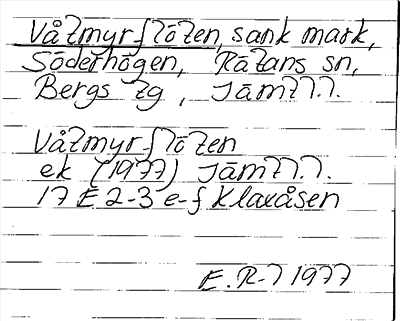 Våtmyrflöten, sank mark,
Söderhögen, Rätans sn,
Bergs tg, Jämtl.l.
Våtmyrflöten
ek (1977) Jämtl.l.
17 E 2-3 e-f Klaxåsen
E.R-l 1977